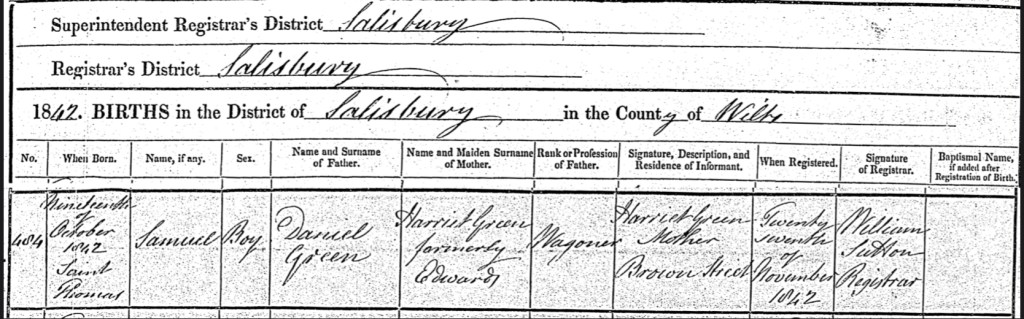 Superintendent Registrar's District Salisbury
Registrar's District Salisbury
1842. BIRTHS in the District of Salisbury in the County of Wilts
No. When Born. Name, if any. Sex. Name and Surname of Father. Name and Maiden Surname of Mother. Rank or Profession of Father. Signature, Description, and Residence of Informant. When Registered. Signature of Registrar. Baptismal Name, if added after Registration of Birth.
484
Nineteenth
of
October
1842
Saint
Thomas
Samuel
Boy
Daniel
Green
Harriet Green
formerly
Edwards
Wagoner
Harriet Green
Mother
Brown Street
Twenty
Seventh
of
November
1842
William
Sutton
Registrar